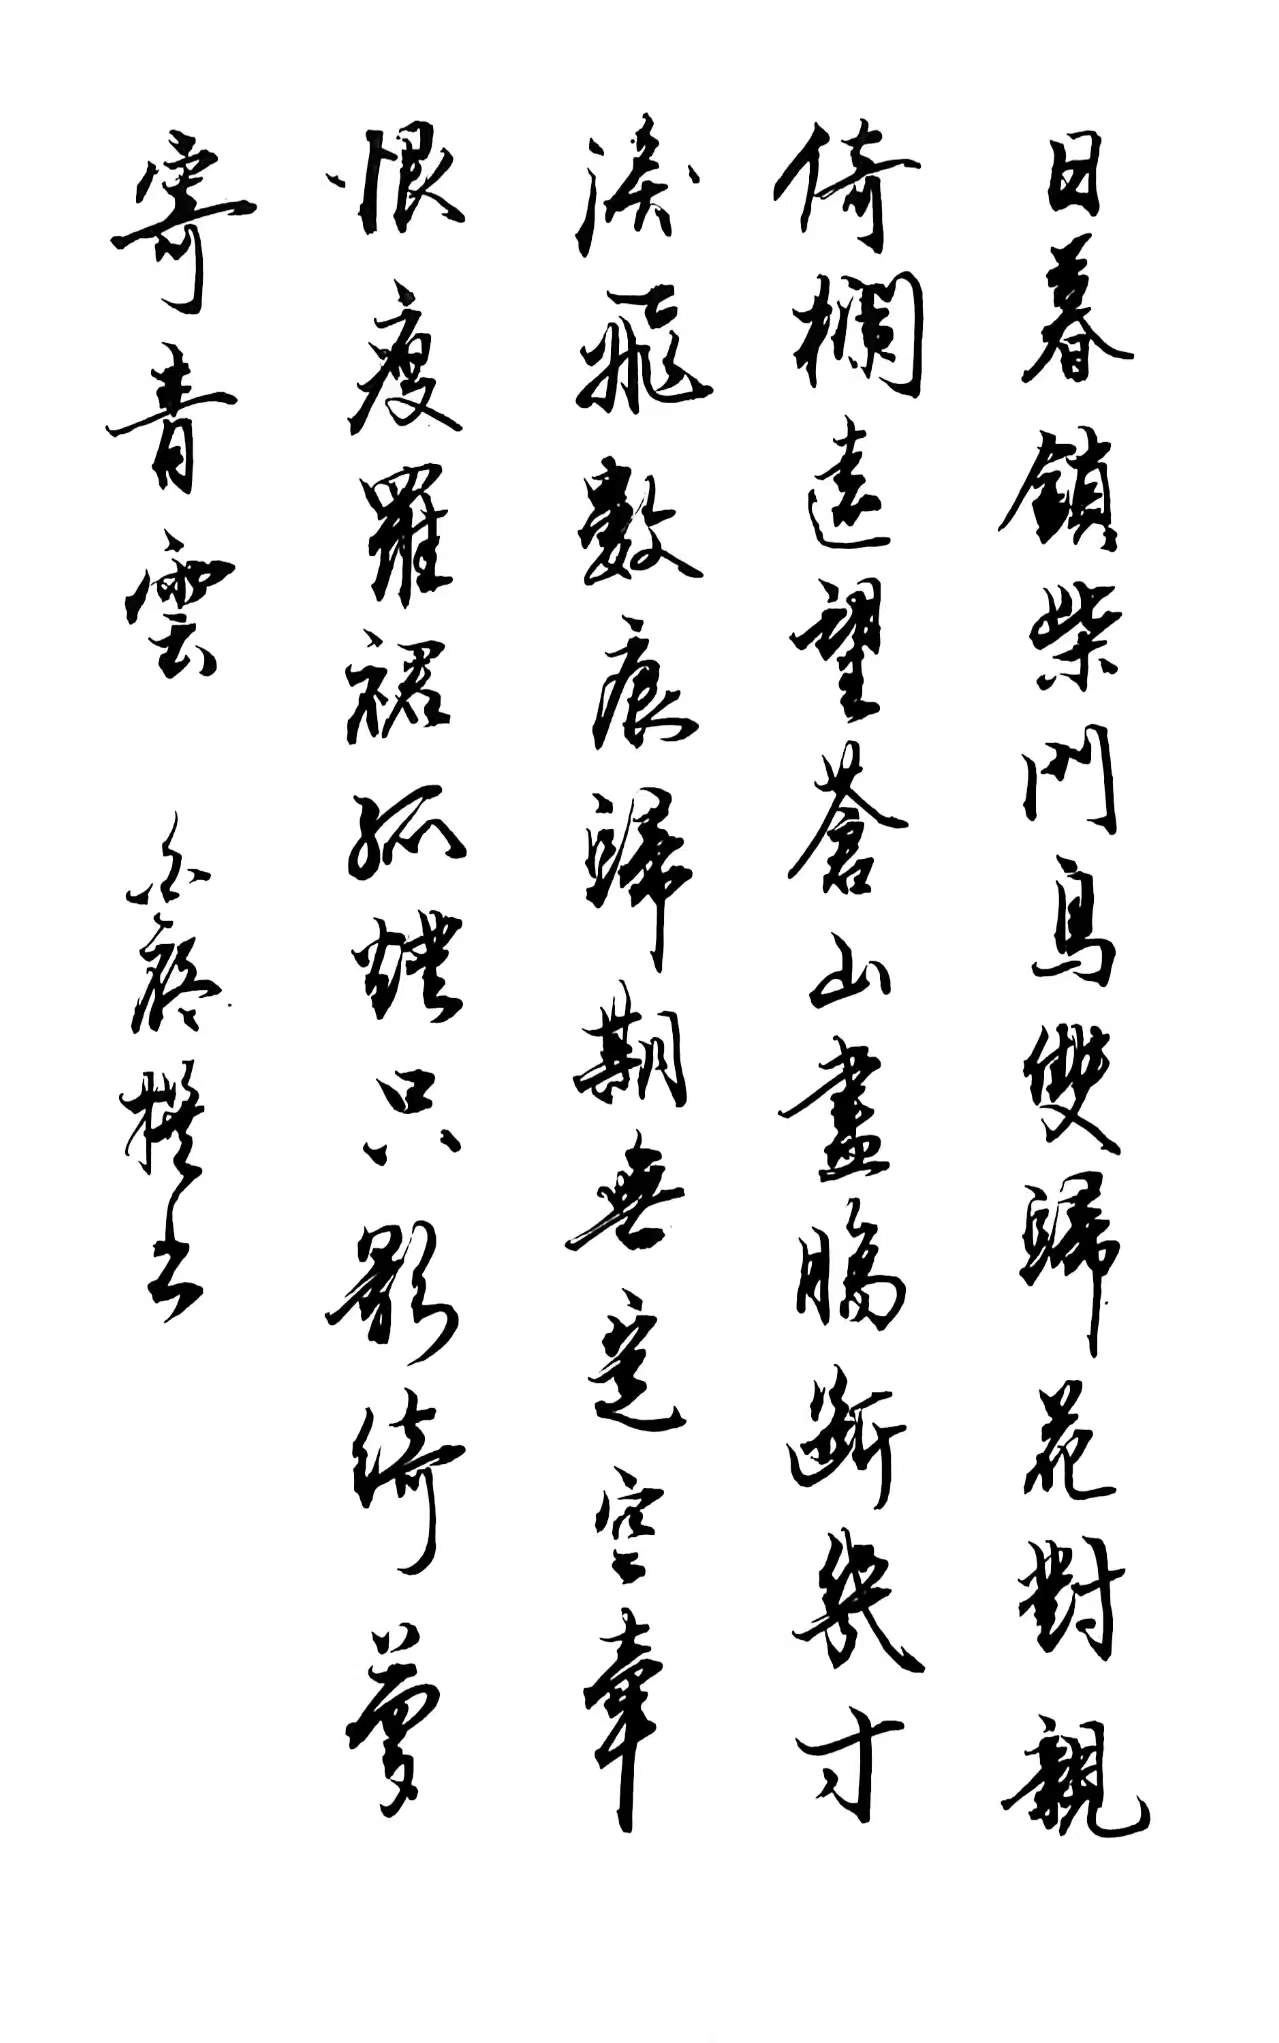 日暮鎖柴門鳥雙歸花對親
倚欄遠望蒼山盡腸斷幾寸
淚飛數痕歸期無定空牽
恨瘦羅裙孤燈只影綺夢
寄青雲